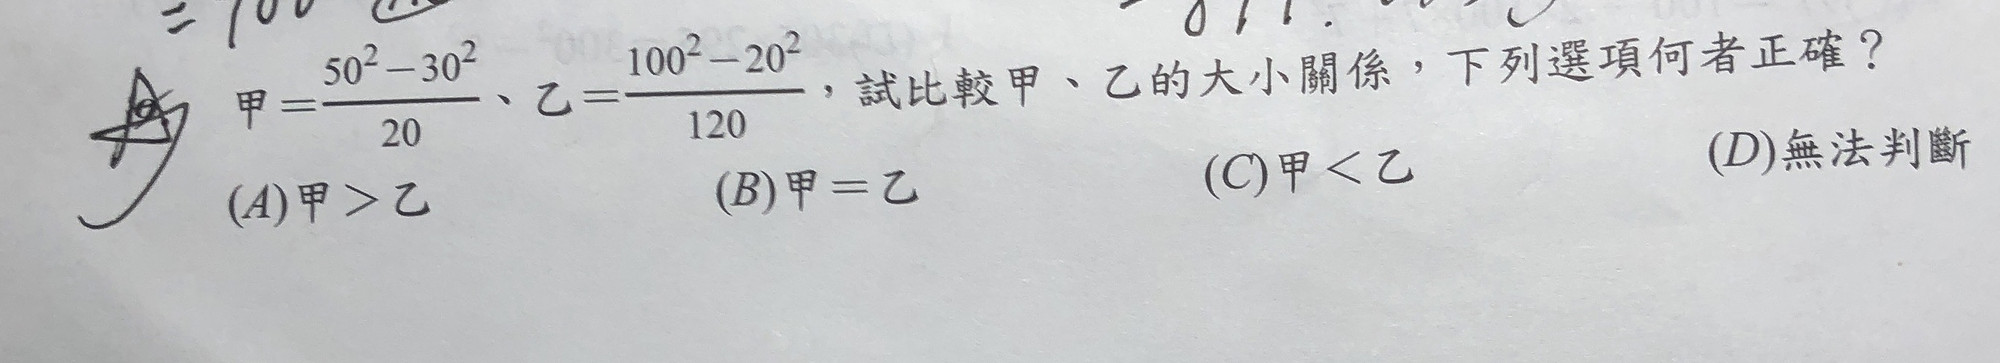 =
甲=\frac{50²-30²}{20}、乙=\frac{100²-20²}{120}，試比較甲、乙的大小關係，下列選項何者正確？
(A)甲＞乙 (B)甲＝乙 (C)甲＜乙 (D)無法判斷